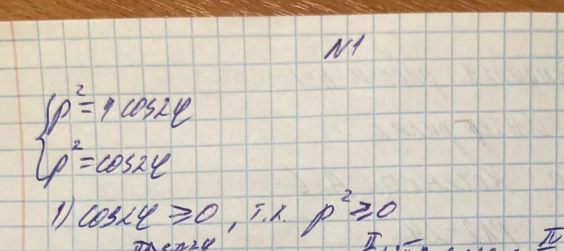 N1
ρ² = 4 cos2φ
ρ² = cos2φ
1) cos2φ ≥ 0, т.к. ρ² ≥ 0